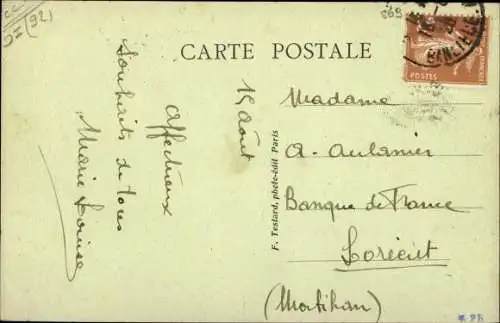 (92)
569
CARTE POSTALE
BANLIEUE
POSTES
15 Août
Affectueux
Souhaits de tous
Marie Louise
F. Testard, photo-édit Paris
Madame
A. Aulanier
Banque de France
Lorient
(Morbihan)